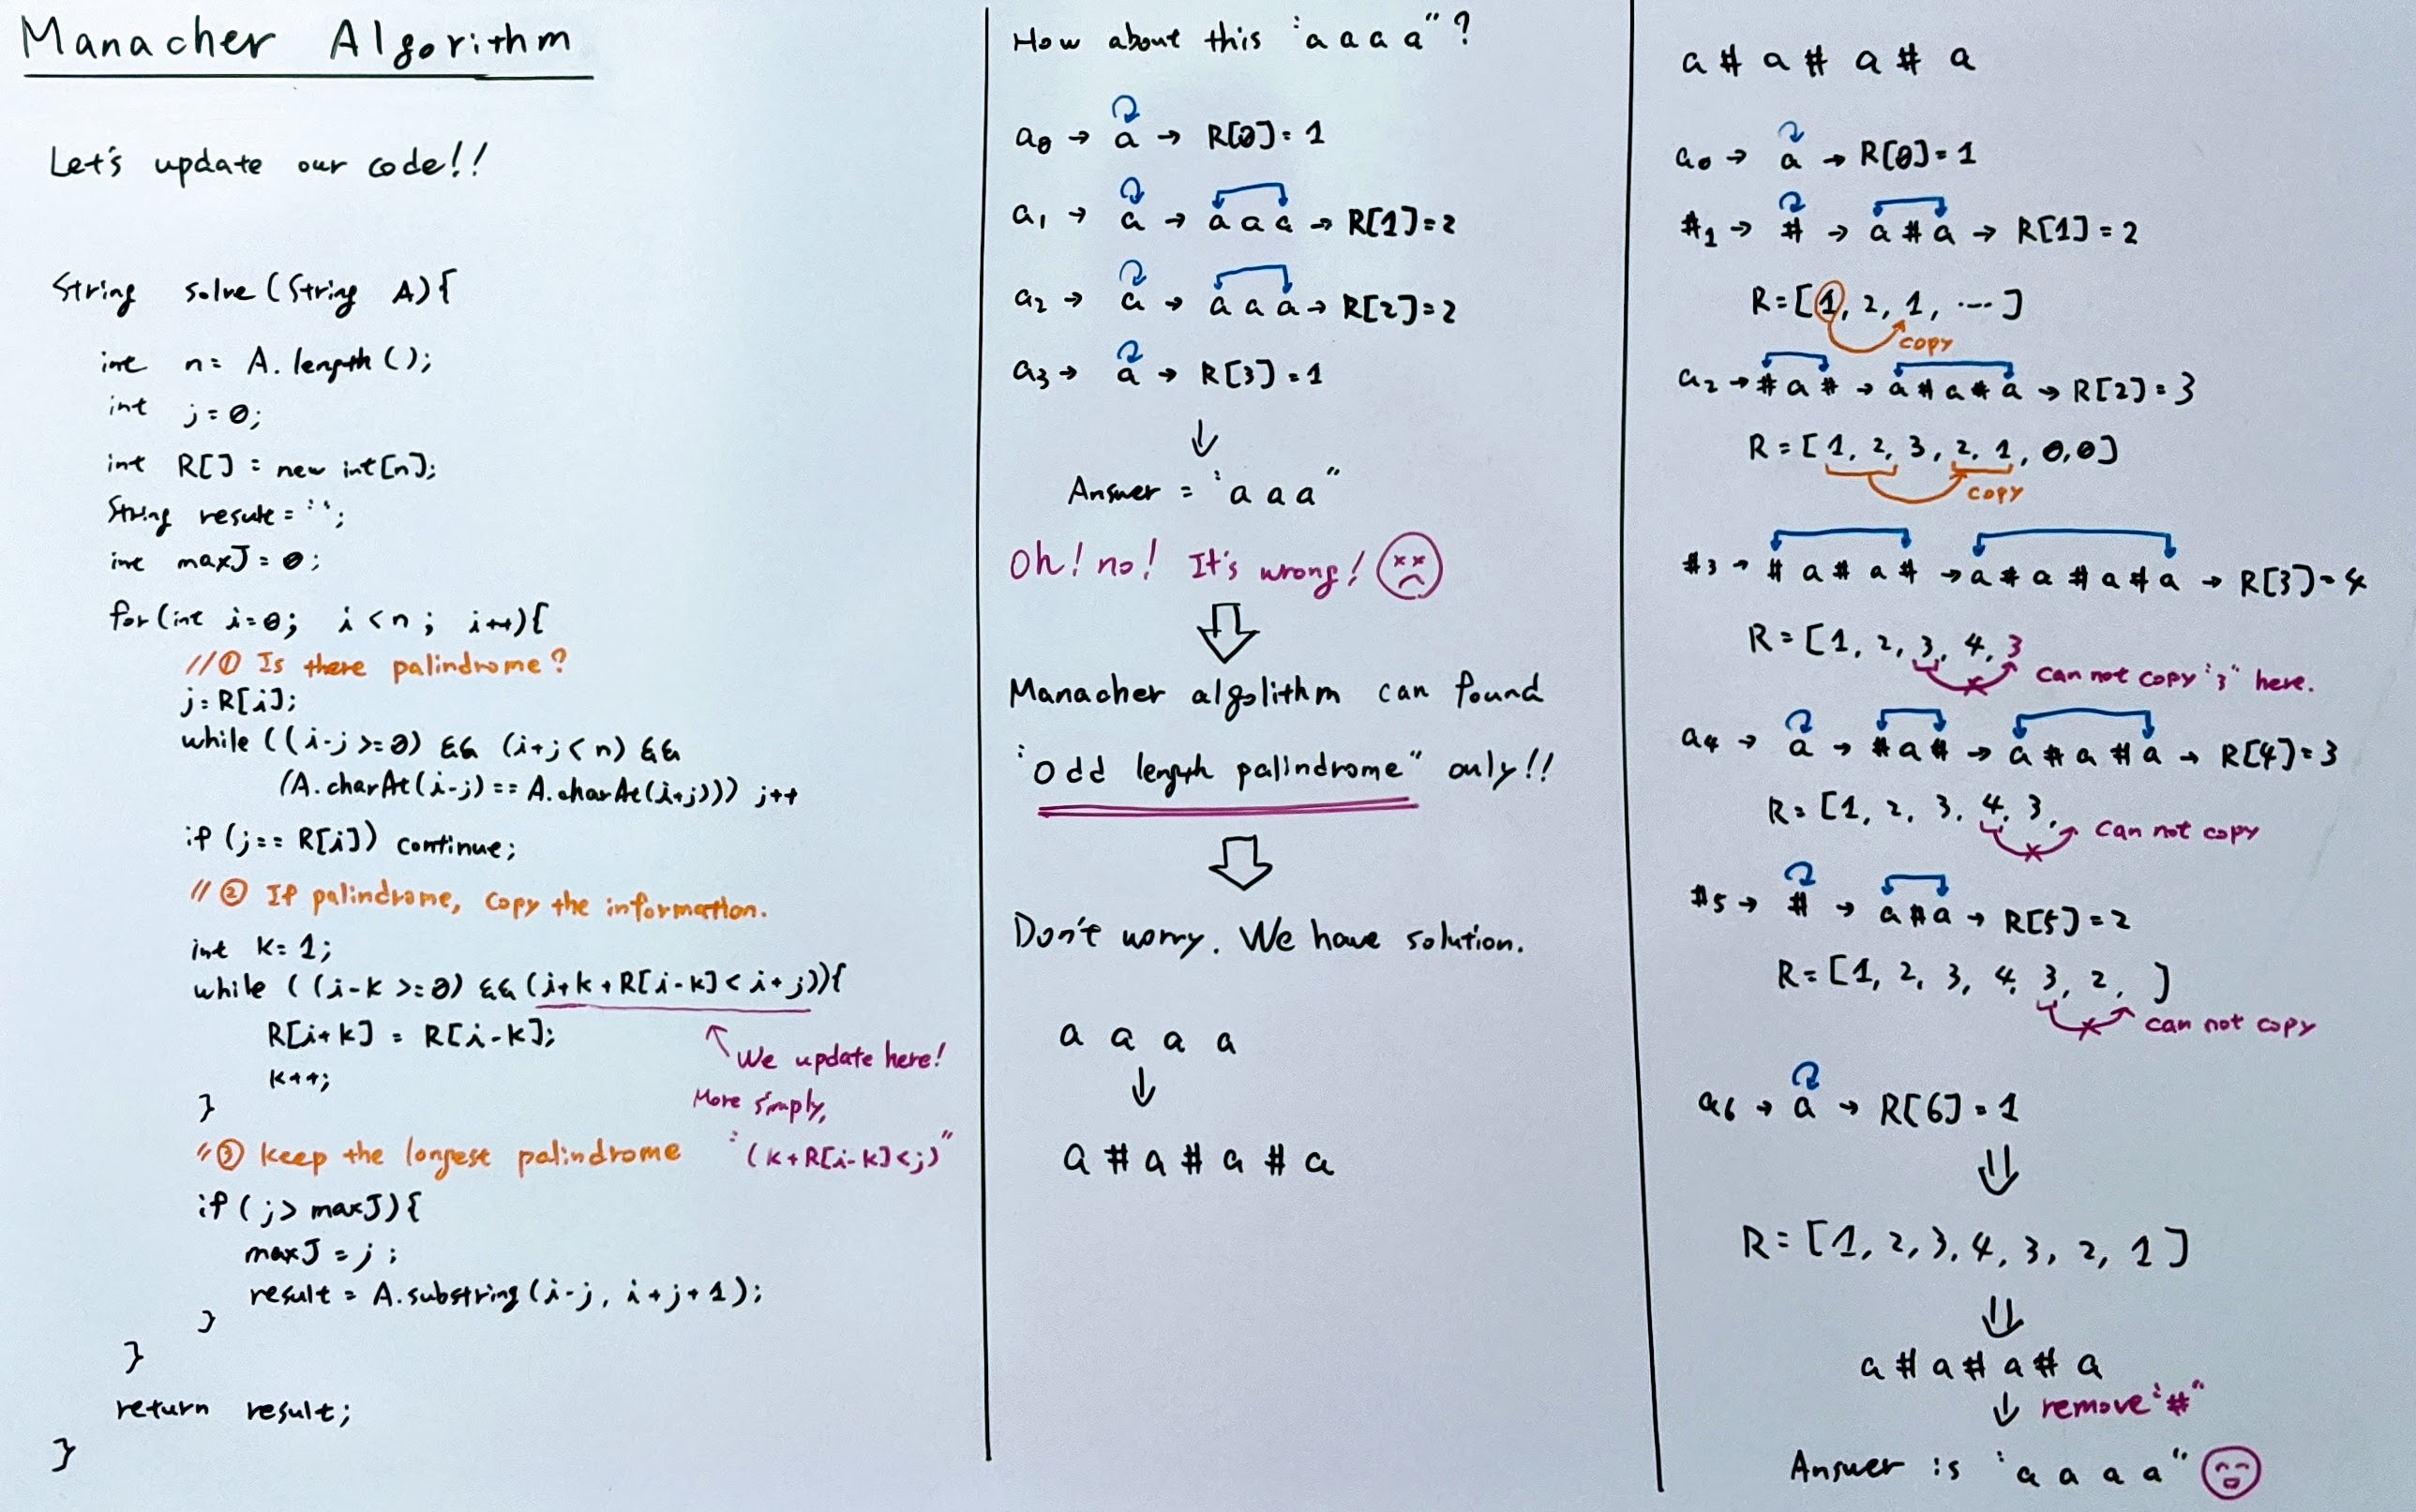 Manacher Algorithm
Let's update our code!!
String solve (String A){
int n = A.length();
int j = 0;
int R[] = new int[n];
String result = "";
int maxJ = 0;
for(int i=0; i<n; i++){
//① Is there palindrome?
j=R[i];
while ((i-j >=0) && (i+j<n) &&
(A.charAt(i-j) == A.charAt(i+j))) j++
if (j== R[i]) continue;
//② If palindrome, copy the information.
int k=1;
while ((i-k >=0) && (i+k+R[i-k]<i+j)){
R[i+k] = R[i-k];
k++;
}
We update here!
More simply,
"(k+R[i-k]<j)"
//③ keep the longest palindrome
if (j> maxJ){
maxJ = j;
result = A.substring(i-j, i+j+1);
}
}
return result;
}
How about this "aaaa"?
a0 → a → R[0]=1
a1 → a → aaa → R[1]=2
a2 → a → aaa → R[2]=2
a3 → a → R[3]=1
↓
Answer = "aaa"
Oh! no! It's wrong!
Manacher algolithm can found
"Odd length palindrome" only!!
Don't worry. We have solution.
a a a a
↓
a # a # a # a
a # a # a # a
a0 → a → R[0]=1
#1 → # → a#a → R[1]=2
R=[1, 2, 1, ...]
copy
a2 → #a# → a#a#a → R[2]=3
R=[1, 2, 3, 2, 1, 0, 0]
copy
#3 → #a#a# → a#a#a#a → R[3]=4
R=[1, 2, 3, 4, 3
can not copy "3" here.
a4 → a → #a# → a#a#a → R[4]=3
R=[1, 2, 3, 4, 3,
can not copy
#5 → # → a#a → R[5]=2
R=[1, 2, 3, 4, 3, 2, ]
can not copy
a6 → a → R[6]=1
⇓
R=[1, 2, 3, 4, 3, 2, 1]
⇓
a # a # a # a
↓ remove "#"
Answer is "aaaa"